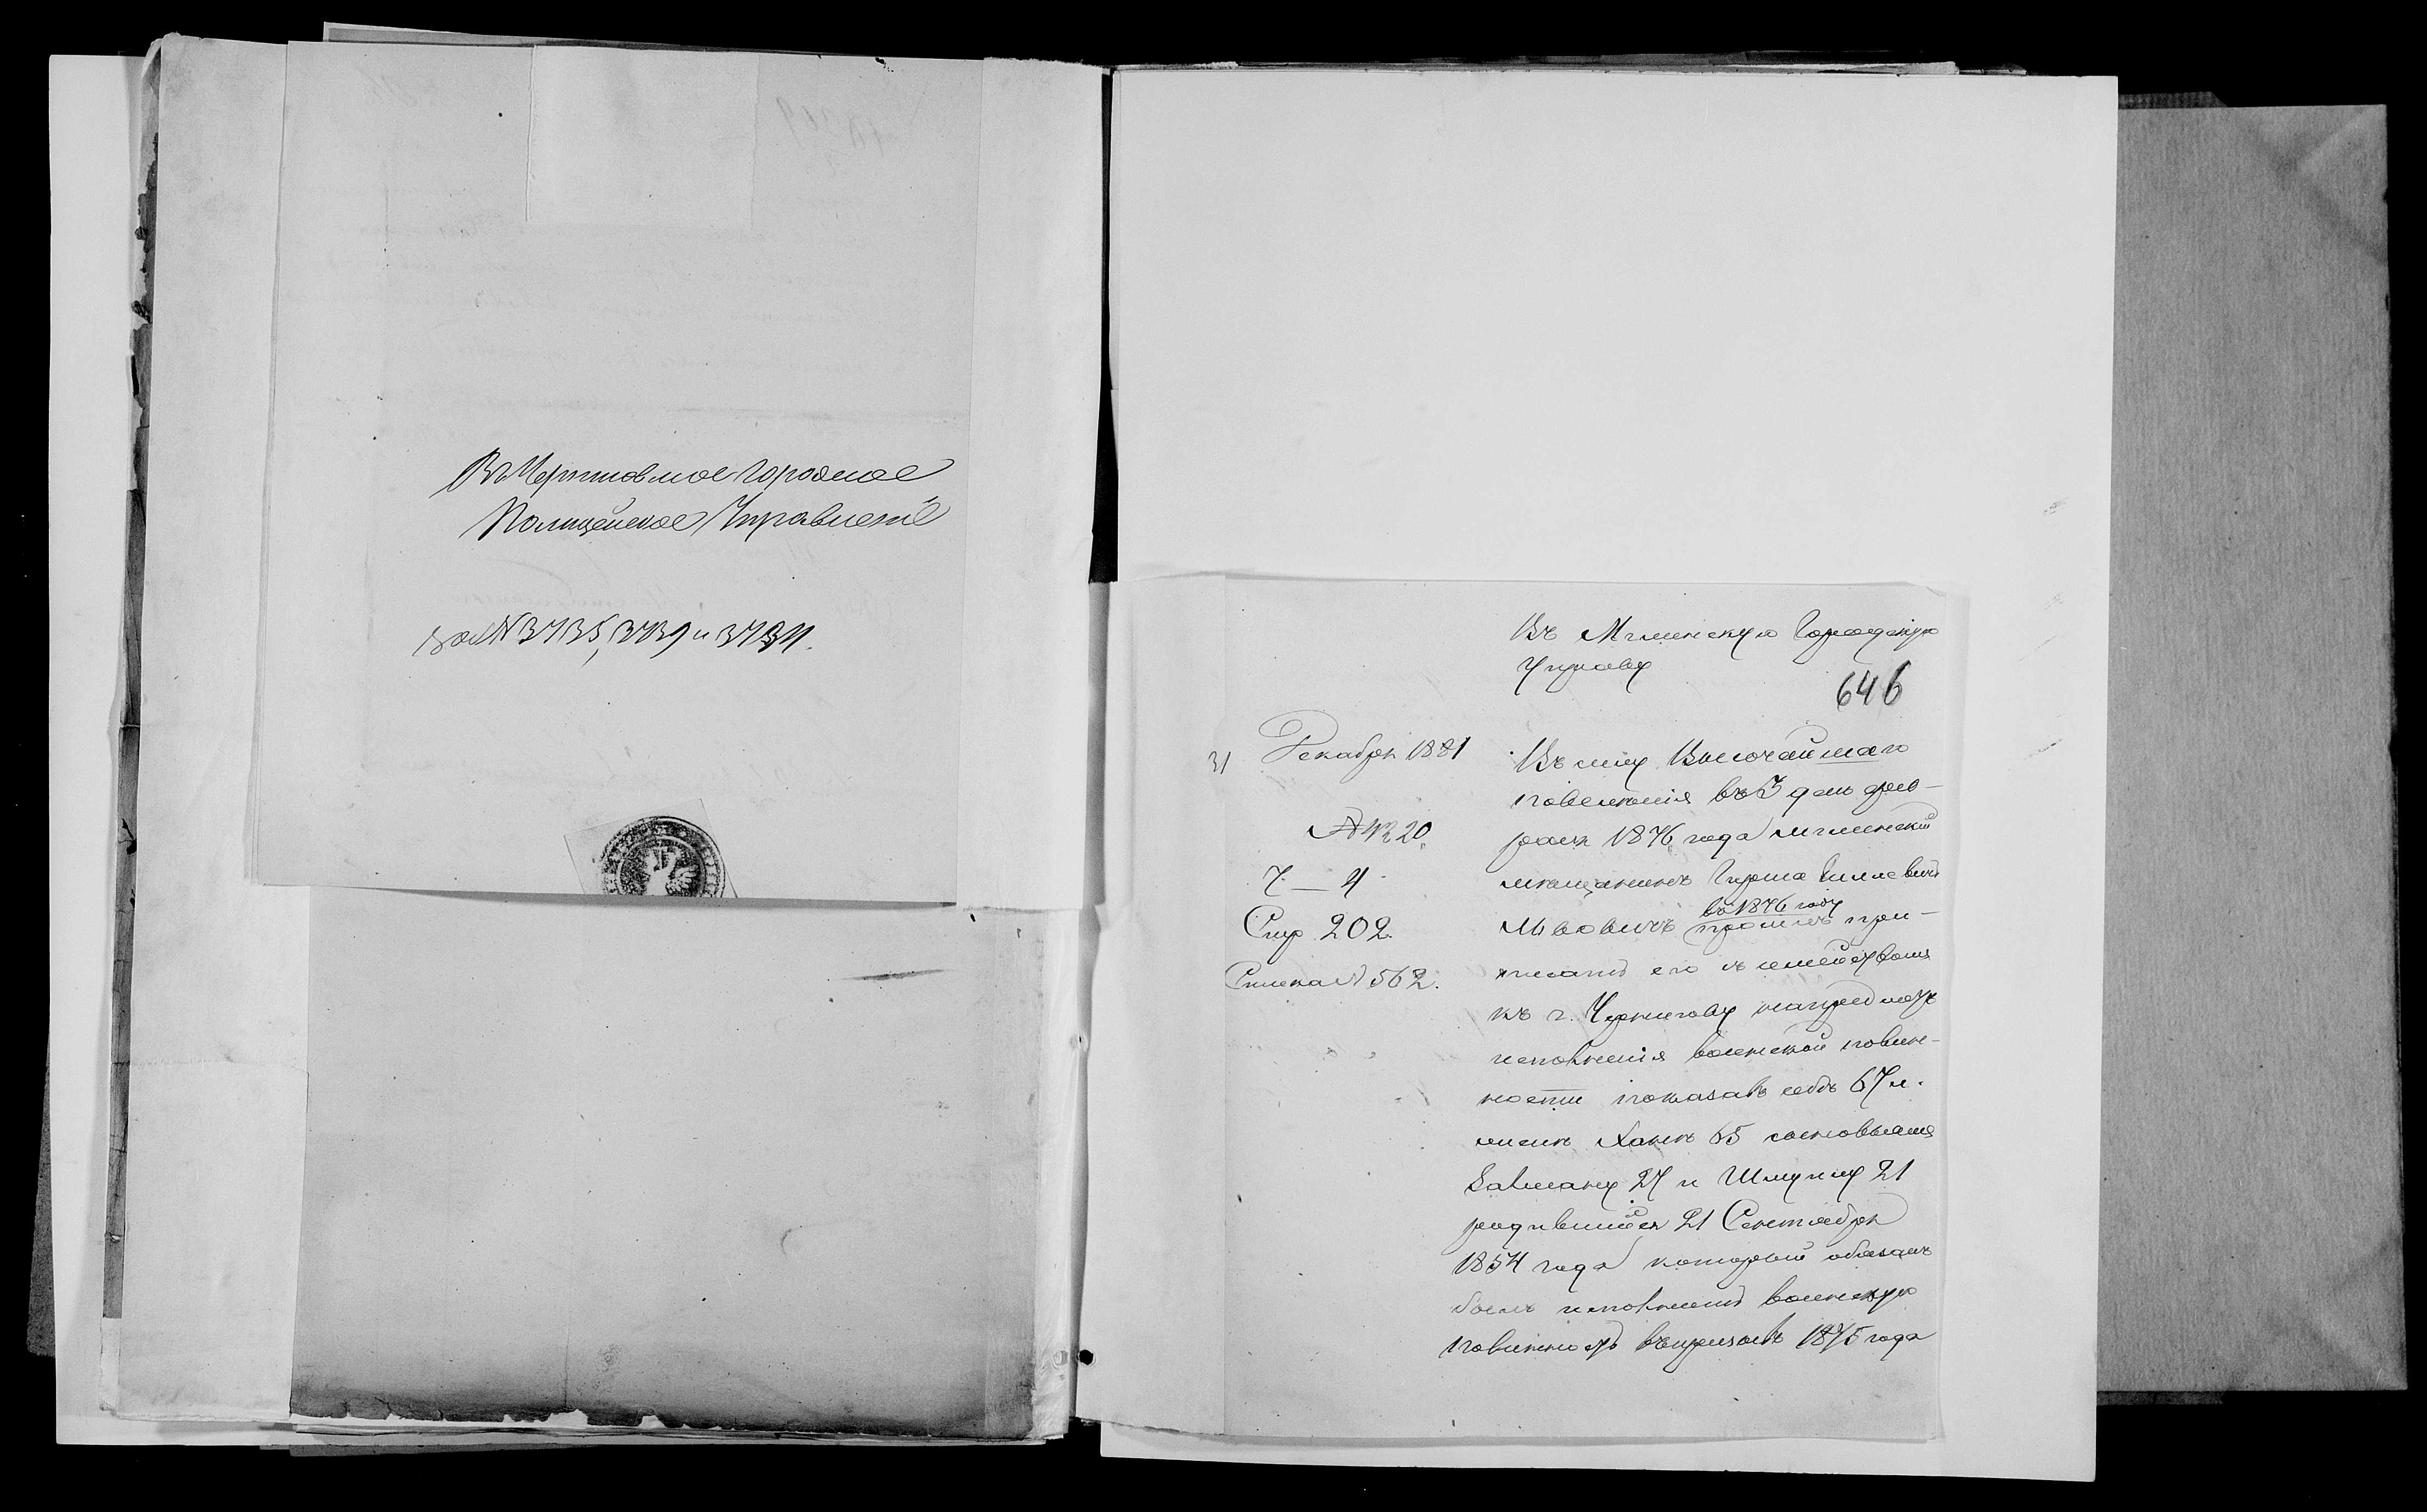 Въ Черниговское Городское
Полицейское Управленіе
3735, 3739 и
Въ Мглинскую Городскую
Управу
646
31 Декабря 1881
№ 4320.
7 — 4
Стр 202.
Списка № 562.
Въ силу Высочайшаго
повеленія въ 3 день фев-
раля 1876 года мглинскій
мещанинъ Гирша
въ 1876 году
Мововичъ просилъ при-
писать его съ семействомъ
къ г. Чернигову на предметъ
исполненія воинской повин-
ности показавъ себѣ 67 л.
женѣ Ханѣ 65 сыновьямъ
Залману 27 и Шмулю 21
родившійся 21 Сентября
1854 года который обязанъ
былъ исполнить воинскую
повинность въ призывъ 1875 года